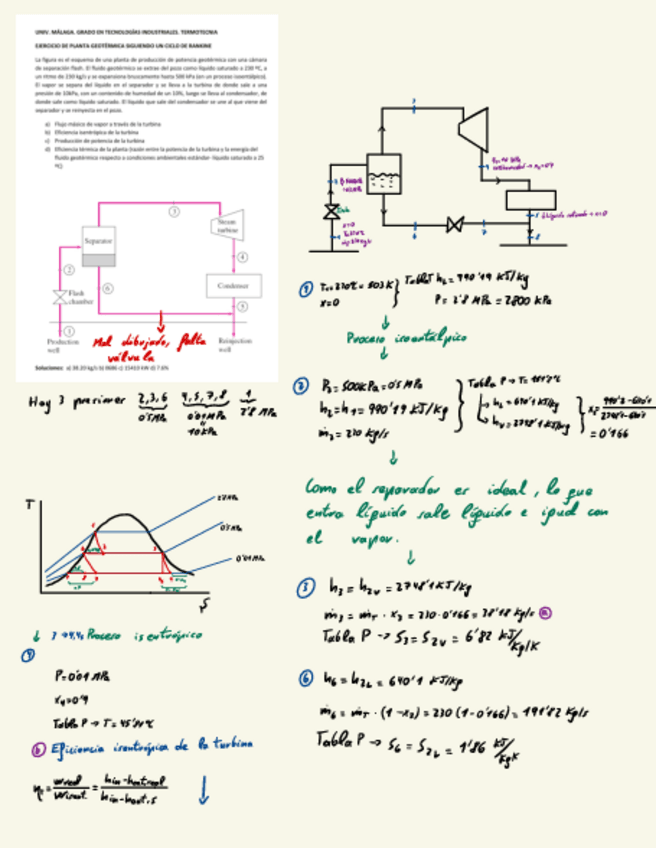 UNIV. MÁLAGA. GRADO EN TECNOLOGÍAS INDUSTRIALES. TERMOTECNIA
EJERCICIO DE PLANTA GEOTÉRMICA SIGUIENDO UN CICLO DE RANKINE
La figura es el esquema de una planta de producción de potencia geotérmica con una cámara
de separación flash. El fluido geotérmico se extrae del pozo como líquido saturado a 230 ºC, a
un ritmo de 230 kg/s y se expansiona bruscamente hasta 500 kPa (en un proceso isoentálpico).
El vapor se separa del líquido en el separador y se lleva a la turbina de donde sale a una
presión de 10kPa, con un contenido de humedad de un 10%, luego se lleva al condensador, de
donde sale como líquido saturado. El líquido que sale del condensador se une al que viene del
separador y se reinyecta en el pozo.
a) Flujo másico de vapor a través de la turbina
b) Eficiencia isentrópica de la turbina
c) Producción de potencia de la turbina
d) Eficiencia térmica de la planta (razón entre la potencia de la turbina y la energía del
fluido geotérmico respecto a condiciones ambientales estándar- líquido saturado a 25
ºC)
3
Steam
turbine
Separator
4
2
6
Condenser
Flash
chamber
5
1
Production
well
Reinjection
well
Mal dibujado, falta
válvula
Soluciones: a) 38.20 kg/s b) 0686 c) 15410 kW d) 7.6%
Hay 3 presiones 2,3,6 4,5,7,8 1
0'5MPa 0'01MPa 2'8 MPa
10kPa
T
S
3 → 4,4s Proceso isentrópico
4
P=0'01 MPa
x4=0'9
Tabla P → T= 45'81ºC
b Eficiencia isentrópica de la turbina
1 T1=230ºC = 503K
x=0
Tabla T h1= 990'19 kJ/kg
P= 2'8 MPa = 2800 kPa
Proceso isoentálpico
2 P2=500kPa=0'5 MPa
h2=h1=990'19 kJ/kg
ṁ2=230 kg/s
= 0'166
Como el separador es ideal, lo que
entra líquido sale líquido e igual con
el vapor.
3 h3 = h2v = 2748'1 kJ/kg
ṁ3 = ṁT · x2 = 230·0'166 = 38'18 kg/s a
Tabla P → S3 = S2v = 6'82 kJ/kgK
6 h6 = h2L = 640'1 kJ/kg
ṁ6 = ṁT · (1-x2) = 230 (1-0'166) = 191'82 kg/s
Tabla P → S6 = S2L = 1'86 kJ/kgK